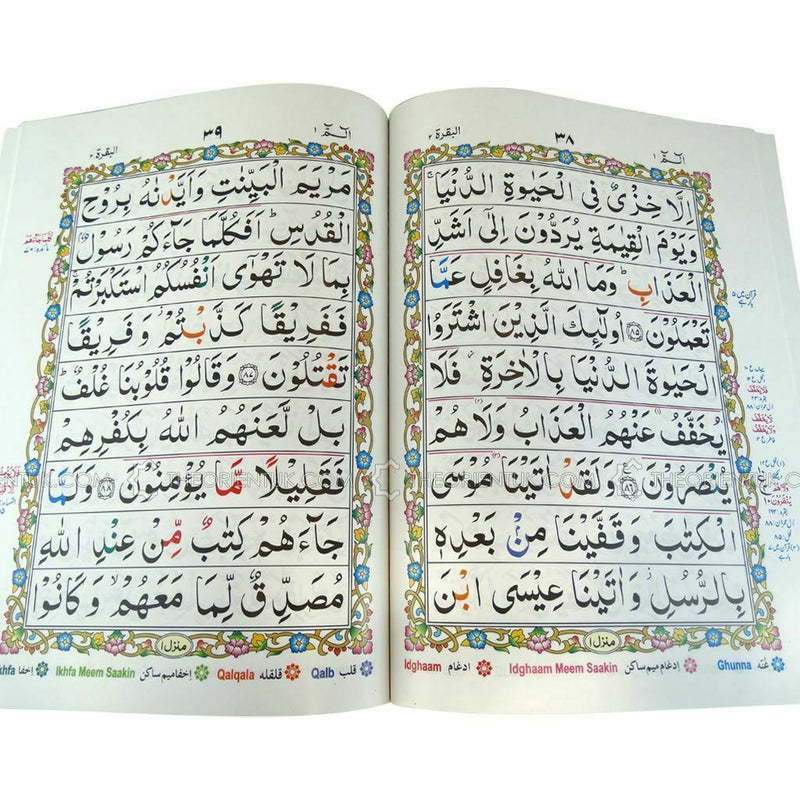 الٓمّٓ ١
٣٨
البقرة ٢
اِلَّا خِزْیٌ فِی الْحَیٰوةِ الدُّنْیَا ۚ
وَیَوْمَ الْقِیٰمَةِ یُرَدُّوْنَ اِلٰۤی اَشَدِّ
الْعَذَابِ ؕ وَمَا اللّٰهُ بِغَافِلٍ عَمَّا
تَعْمَلُوْنَ ﴿۸۵﴾ اُولٰٓئِكَ الَّذِیْنَ اشْتَرَوُا
الْحَیٰوةَ الدُّنْیَا بِالْاٰخِرَةِ ؗ فَلَا
یُخَفَّفُ عَنْهُمُ الْعَذَابُ وَلَا هُمْ
یُنْصَرُوْنَ ﴿۸۶﴾ وَلَقَدْ اٰتَیْنَا مُوْسَی
الْكِتٰبَ وَقَفَّیْنَا مِنْۢ بَعْدِهٖ
بِالرُّسُلِ ؗ وَاٰتَیْنَا عِیْسَی ابْنَ
منزل ١
Ghunna غُنّه
Idghaam Meem Saakin ادغام میم ساکن
Idghaam ادغام
الٓمّٓ ١
٣٩
البقرة ٢
مَرْیَمَ الْبَیِّنٰتِ وَاَیَّدْنٰهُ بِرُوْحِ
الْقُدُسِ ؕ اَفَكُلَّمَا جَآءَكُمْ رَسُوْلٌۢ
بِمَا لَا تَهْوٰۤی اَنْفُسُكُمُ اسْتَكْبَرْتُمْ ۚ
فَفَرِیْقًا كَذَّبْتُمْ ؗ وَفَرِیْقًا
تَقْتُلُوْنَ ﴿۸۷﴾ وَقَالُوْا قُلُوْبُنَا غُلْفٌ ؕ
بَلْ لَّعَنَهُمُ اللّٰهُ بِكُفْرِهِمْ
فَقَلِیْلًا مَّا یُؤْمِنُوْنَ ﴿۸۸﴾ وَلَمَّا
جَآءَهُمْ كِتٰبٌ مِّنْ عِنْدِ اللّٰهِ
مُصَدِّقٌ لِّمَا مَعَهُمْ ۙ وَكَانُوْا
منزل ١
Qalb قلب
Qalqala قلقله
Ikhfa Meem Saakin اِخفا میم ساکن
khfa اِخفا
THEORIENTIK.COM